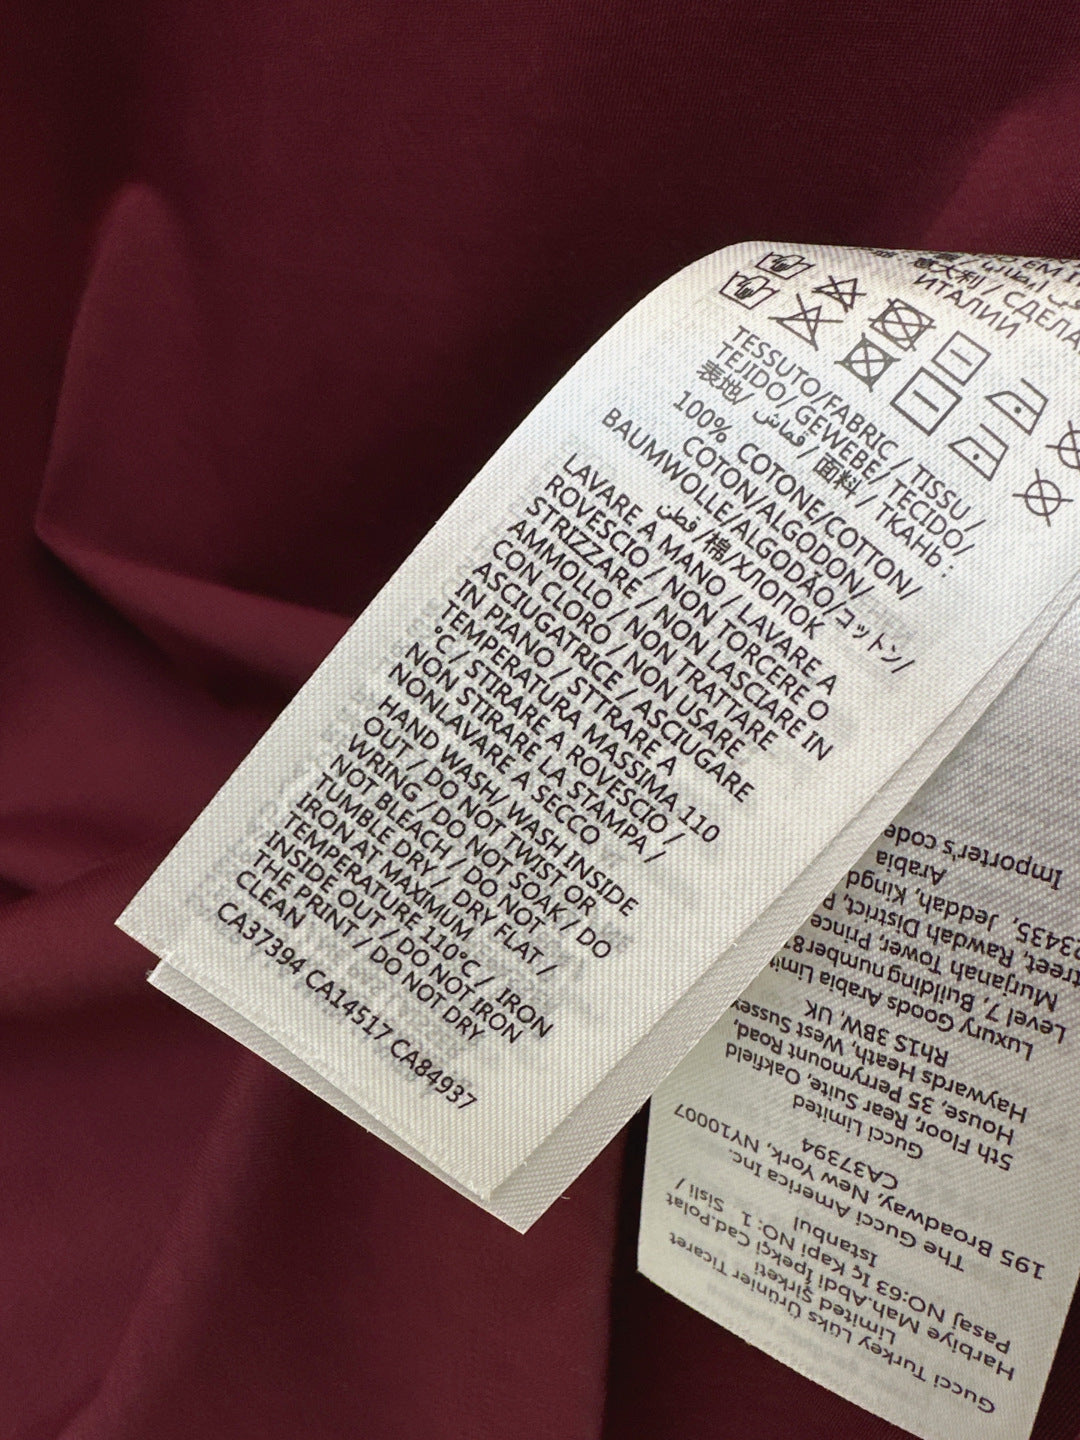 ИТАЛИИ / СДЕЛА
TESSUTO/FABRIC / TISSU /
TEJIDO/ GEWEBE/ TECIDO/
表地/ قماش/ 面料 / ТКАНЬ :
100% COTONE/COTTON/
COTON/ALGODON/
BAUMWOLLE/ALGODÃO/コットン/
قطن/棉/ХЛОПОК
LAVARE A MANO / LAVARE A
ROVESCIO / NON TORCERE O
STRIZZARE / NON LASCIARE IN
AMMOLLO / NON TRATTARE
CON CLORO / NON USARE
ASCIUGATRICE / ASCIUGARE
IN PIANO / STTRARE A
TEMPERATURA MASSIMA 110
°C / STIRARE A ROVESCIO /
NON STIRARE LA STAMPA /
NONLAVARE A SECCO
HAND WASH/ WASH INSIDE
OUT / DO NOT TWIST OR
WRING / DO NOT SOAK / DO
NOT BLEACH / DO NOT
TUMBLE DRY / DRY FLAT /
IRON AT MAXIMUM
TEMPERATURE 110°C / IRON
INSIDE OUT / DO NOT IRON
THE PRINT / DO NOT DRY
CLEAN
CA37394 CA14517 CA84937
Gucci Turkey Lüks Ürünler Ticaret
Limited Şirketi
Harbiye Mah.Abdi İpekçi Cad.Polat
Pasaj NO:63 Iç Kapi NO: 1 Sisli /
Istanbul
The Gucci America Inc.
195 Broadway, New York, NY10007
CA37394
Gucci Limited
5th Floor, Rear Suite, Oakfield
House, 35 Perrymount Road,
Haywards Heath, West Sussex
Rh1S 3BW, UK
Luxury Goods Arabia Limit
Level 7, Building number87
Murjanah Tower, Prince
treet, Rawdah District, P
23435, Jeddah, Kingd
Arabia
Importer's code